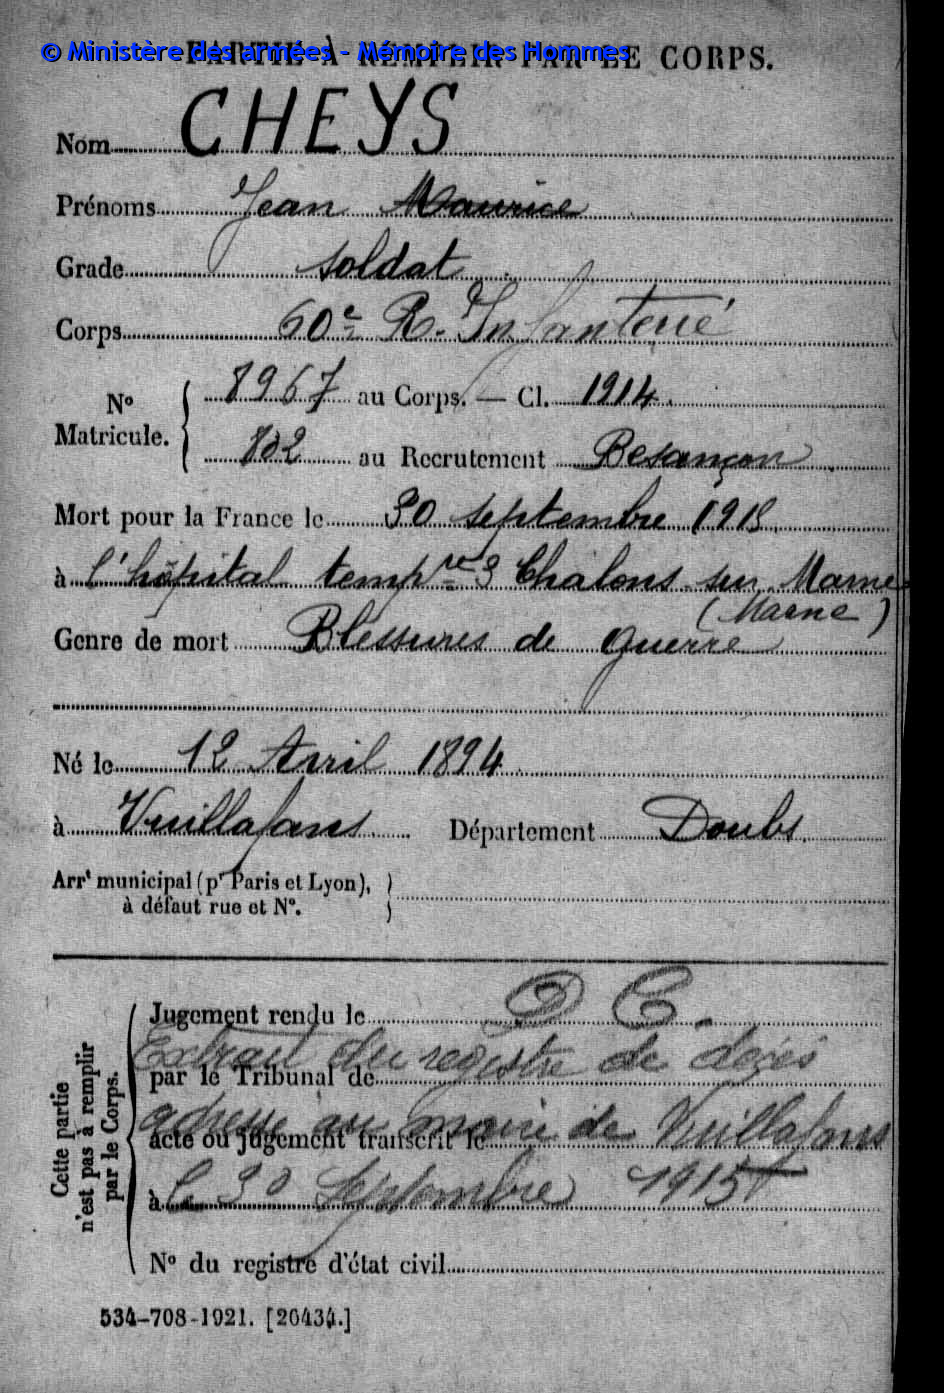 © Ministère des armées - Mémoire des Hommes
PARTIE À REMPLIR PAR LE CORPS.
Nom CHEYS
Prénoms Jean Maurice
Grade soldat
Corps 60e R. Infanterie
No Matricule. 8967 au Corps. — Cl. 1914
802 au Recrutement Besançon
Mort pour la France le 30 septembre 1915
à l'hôpital tempre 3 Chalons sur Marne
(Marne)
Genre de mort Blessures de guerre
Né le 12 Avril 1894
à Vuillafans Département Doubs
Arrt municipal (pr Paris et Lyon),
à défaut rue et No.
Cette partie n'est pas à remplir par le Corps.
Jugement rendu le D C.
Extrait du registre de décès
par le Tribunal de
adressé au maire de Vuillafans
acte ou jugement transcrit le
à le 30 Septembre 1915
No du registre d'état civil
534-708-1921. [26434.]